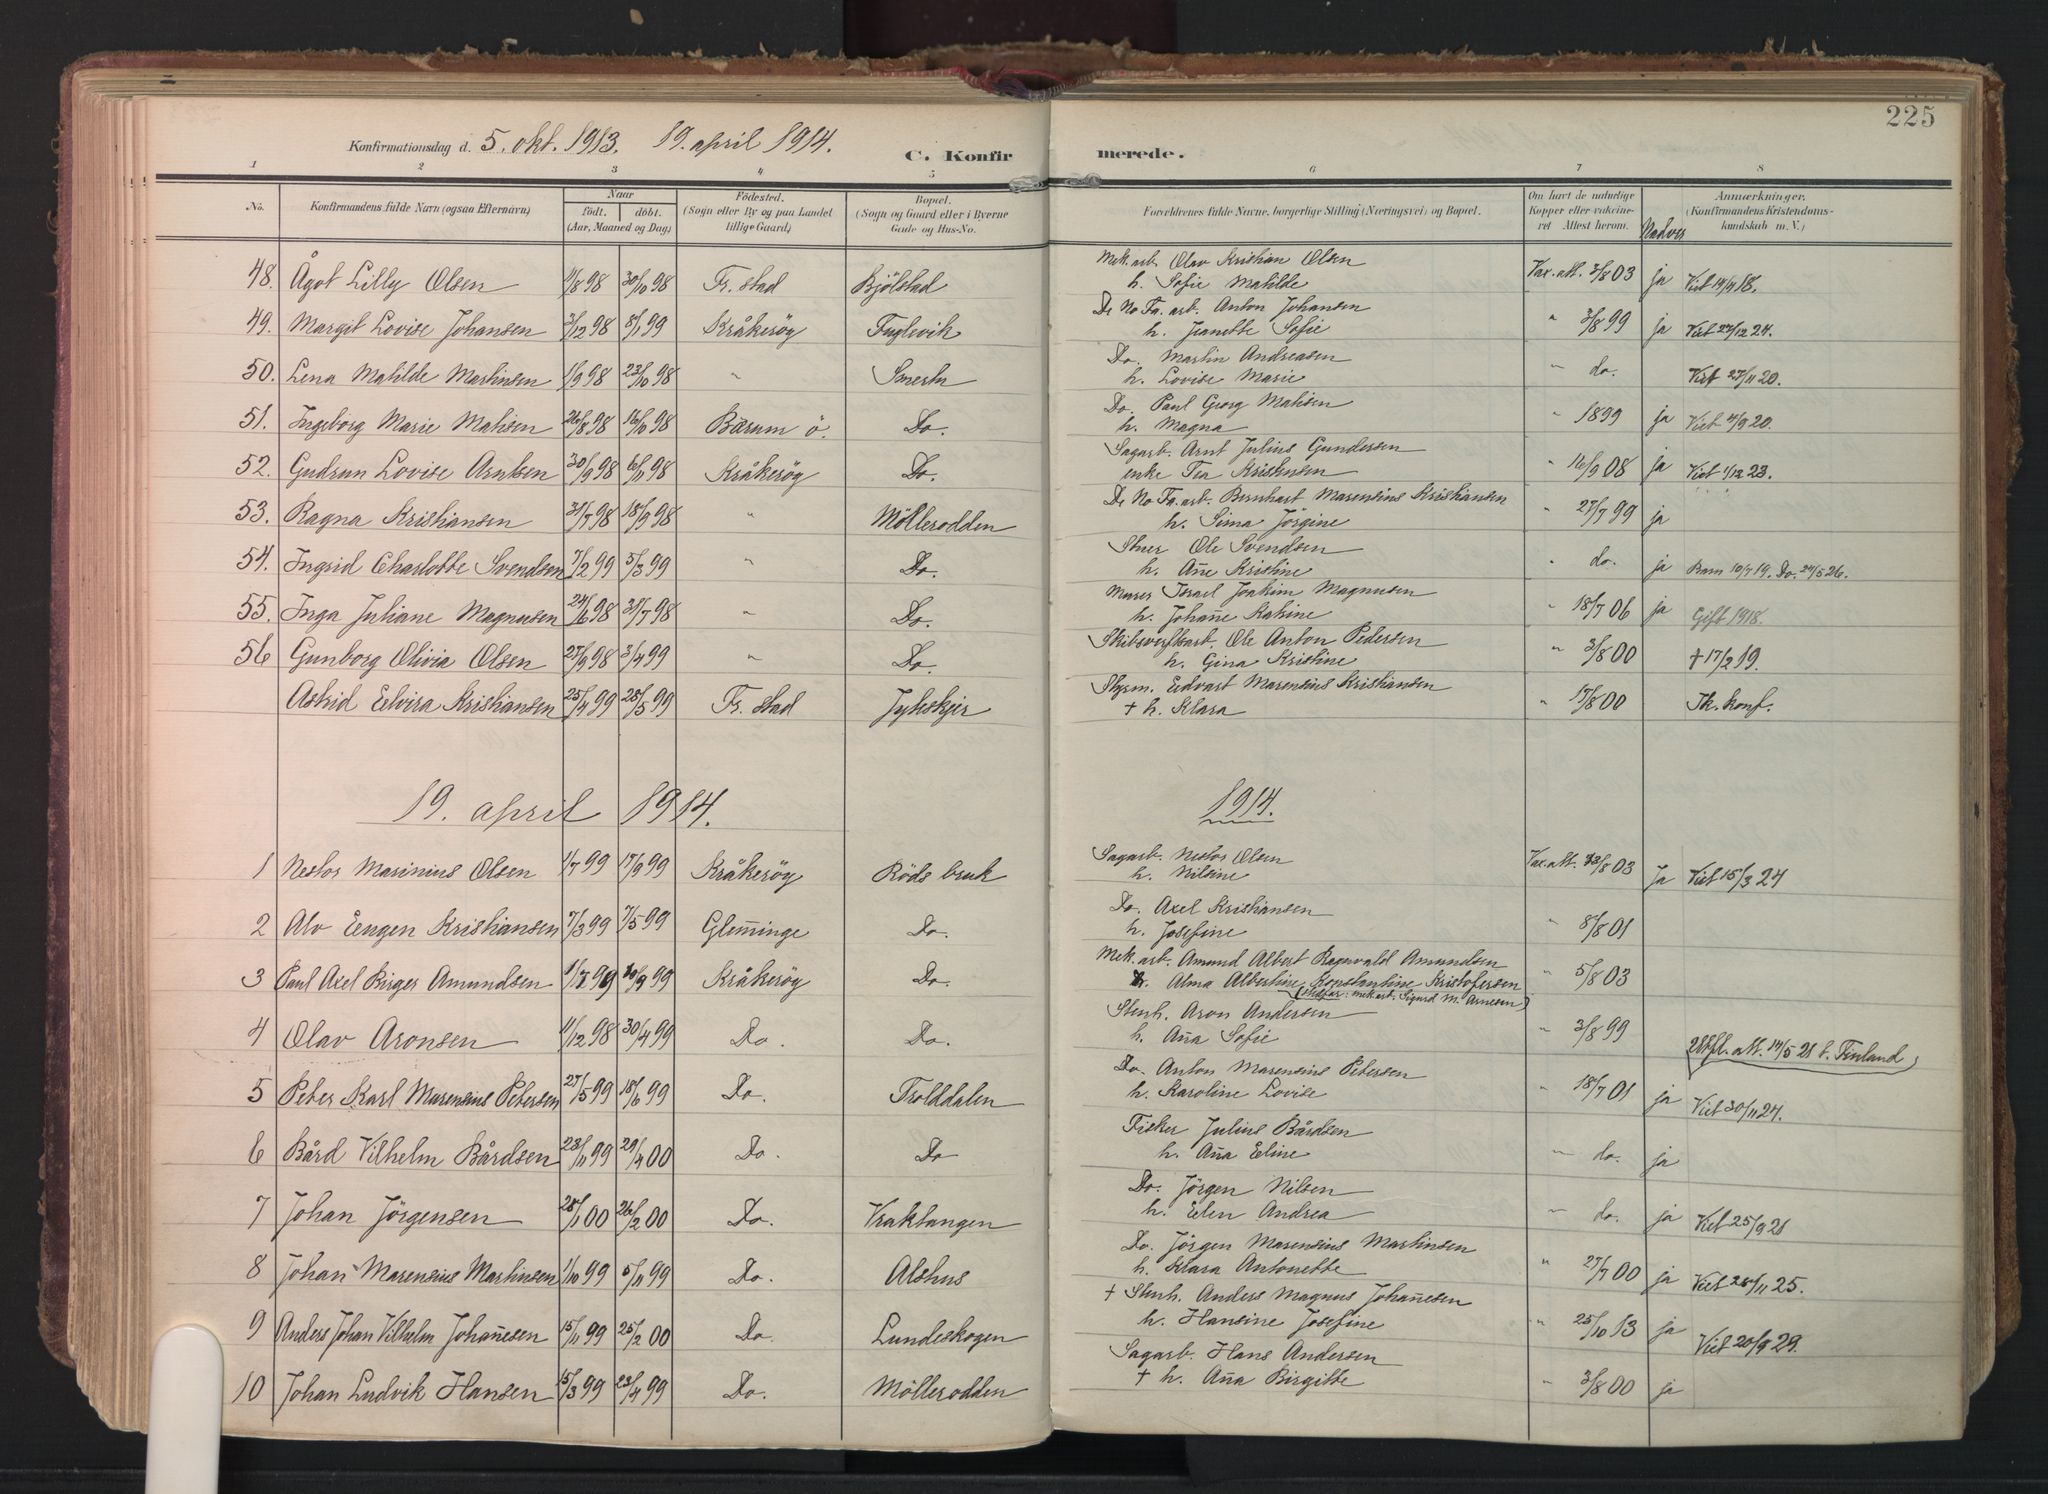 225
Konfirmationsdag d. 5. okt. 1913. 19. april 1914.
C. Konfirmerede.
1 2 3 4 5 6 7 8
No.
Konfirmandens fulde Navn (ogsaa Efternavn)
Naar
födt. döbt.
(Aar, Maaned og Dag)
Födested.
(Sogn eller By og paa Landet
tillige Gaard)
Bopæl.
(Sogn og Gaard eller i Byerne
Gade og Hus-No.
Forældrenes fulde Navne, borgerlige Stilling (Næringsvei) og Bopæl.
Om havt de naturlige
Kopper eller vakcine-
ret Attest herom.
Nadver
Anmærkninger.
(Konfirmandens Kristendoms-
kundskab m. V.)
48. Ågot Lilly Olsen 11/8 98 30/10 98 Fr.stad Bjölstad Mek. arb. Olav Kristian Olsen Vax. att. 3/8 03 ja Viet 14/9 18.
h. Sofie Matilde
49. Margit Lovise Johansen 3/12 98 8/1 99 Kråkeröy Fuglevik De No Fa. arb. Anton Johansen " 3/8 99 ja Viet 27/12 24.
h. Jeanette Sofie
50. Lena Matilde Martinsen 1/9 98 23/10 98 " Do. Martin Andreasen " do. Viet 27/11 20.
h. Lovise Marie
51. Ingeborg Marie Matisen 26/8 98 16/10 98 Bærum ö. Do. Do. Paul Georg Matisen " 1899 ja Viet 4/9 20.
h. Magna
52. Gudrun Lovise Arntsen 30/9 98 6/11 98 Kråkeröy Do. Sagarb. Arnt Julius Gundersen " 16/9 08 ja Viet 1/12 23.
enke Tea Kristensen
53. Ragna Kristiansen 31/7 98 18/9 98 " Möllerodden De No Fa. arb. Bernhart Marensius Kristiansen " 27/7 99 ja
h. Sima Jörgine
54. Ingrid Charlotte Svendsen 7/2 99 5/3 99 " Do. Ole Svendsen " do. ja Barn 10/7 19. Do. 24/5 26.
h. Ane Kristine
55. Inga Juliane Magnusen 24/6 98 31/7 98 " Do. Murer Israel Joakim Magnusen " 18/7 06 ja Gift 1918.
h. Johañe Katine
56 Gunborg Olivia Olsen 27/9 98 3/4 99 " Do. Skibsverftsarb. Ole Anton Pedersen " 3/8 00 † 17/2 19.
h. Gina Kristine
Astrid Elvira Kristiansen 25/4 99 28/5 99 Fr. stad Styrm. Edvart Marensius Kristiansen " 17/8 00 Ik. konf.
† h. Klara
19. april 1914. 1914.
1 Nestor Marinius Olsen 11/7 99 17/9 99 Kråkeröy Röds bruk Sagarb. Nestor Olsen Vax. att. 13/8 03 Ja Viet 15/3 24
h. Nilsine
2 Alv Eugen Kristiansen 7/3 99 7/5 99 Glem̃inge Do. Do. Axel Kristiansen " 8/8 01
h. Josefine
3 Paul Axel Birger Amundsen 1/7 99 30/9 99 Kråkeröy Do. Mek. arb. Amund Albert Ragnvald Amundsen " 5/8 03
h. Alma Albertine Konstantine Kristofersen
(Stedfar: mek. arb. Sigurd M. Arnesen)
4 Olav Aronsen 11/12 98 30/4 99 Do. Do. Stenh. Aron Andersen " 3/8 99
h. Aña Sofie
Utfl. att. 14/5 21 t. Finland
5 Peter Karl Marensius Petersen 27/5 99 18/6 99 Do. Trolddalen Do. Anton Marensius Petersen " 18/7 01 ja Viet 30/11 24.
h. Karoline Lovise
6 Bård Vilhelm Bårdsen 23/11 99 29/4 00 Do. Do Fisker Julius Bårdsen " do. ja
h. Aña Eline
7 Johan Jörgensen 28/1 00 26/2 00 Do. Vraktangen Do. Jörgen Nilsen " do. ja Viet 25/9 21
h. Elen Andrea
8 Johan Marensius Martinsen 1/10 99 5/11 99 Do. Alshus Do. Jörgen Marensius Martinsen " 27/7 00 ja Viet 28/11 25.
h. Klara Antonette
9 Anders Johan Vilhelm Johañesen 15/11 99 25/2 00 Do. Lundeskogen † Stenh. Anders Magnus Johañesen " 25/10 13 ja Viet 20/9 29.
h. Hansine Josefine
10 Johan Ludvik Hansen 15/3 99 23/4 99 Do. Möllerodden Sagarb. Hans Andersen " 3/8 00 ja
† h. Aña Birgitte